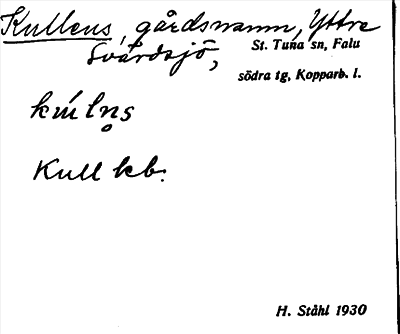 Kullens, gårdsnamn, Yttre
Svärdsjö, St. Tuna sn, Falu
södra tg, Kopparb. l.
kúln̥s
Kull kb.
H. Ståhl 1930